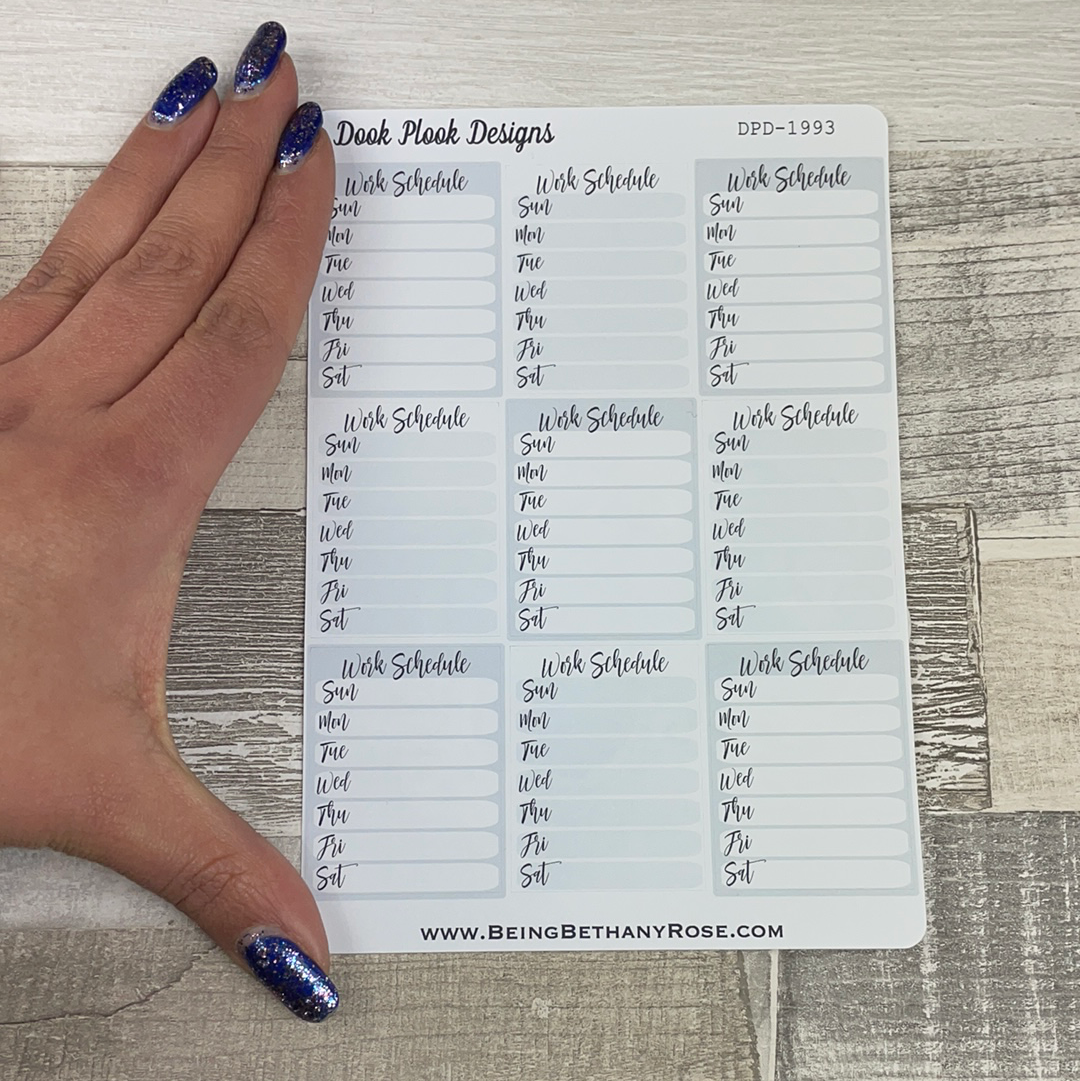 Dook Plook Designs
DPD-1993
Work Schedule
Sun
Mon
Tue
Wed
Thu
Fri
Sat
Work Schedule
Sun
Mon
Tue
Wed
Thu
Fri
Sat
Work Schedule
Sun
Mon
Tue
Wed
Thu
Fri
Sat
Work Schedule
Sun
Mon
Tue
Wed
Thu
Fri
Sat
Work Schedule
Sun
Mon
Tue
Wed
Thu
Fri
Sat
Work Schedule
Sun
Mon
Tue
Wed
Thu
Fri
Sat
Work Schedule
Sun
Mon
Tue
Wed
Thu
Fri
Sat
Work Schedule
Sun
Mon
Tue
Wed
Thu
Fri
Sat
Work Schedule
Sun
Mon
Tue
Wed
Thu
Fri
Sat
www.BeingBethanyRose.com